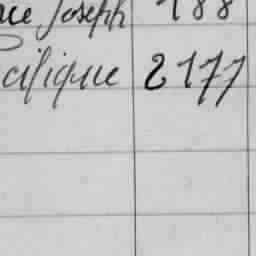 ace Joseph 188
acifique 2177